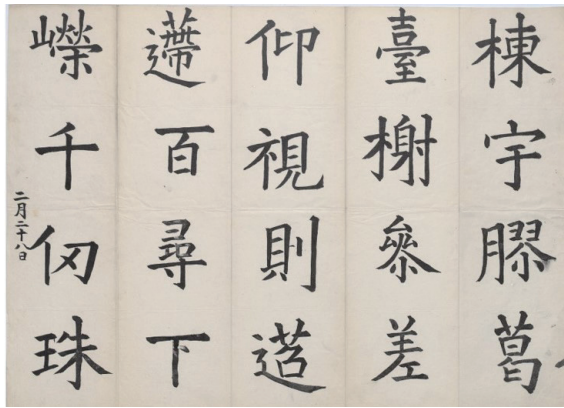 棟宇膠葛
臺榭叅差
仰視則迢
遰百尋下
嶸千仞珠
二月二十八日